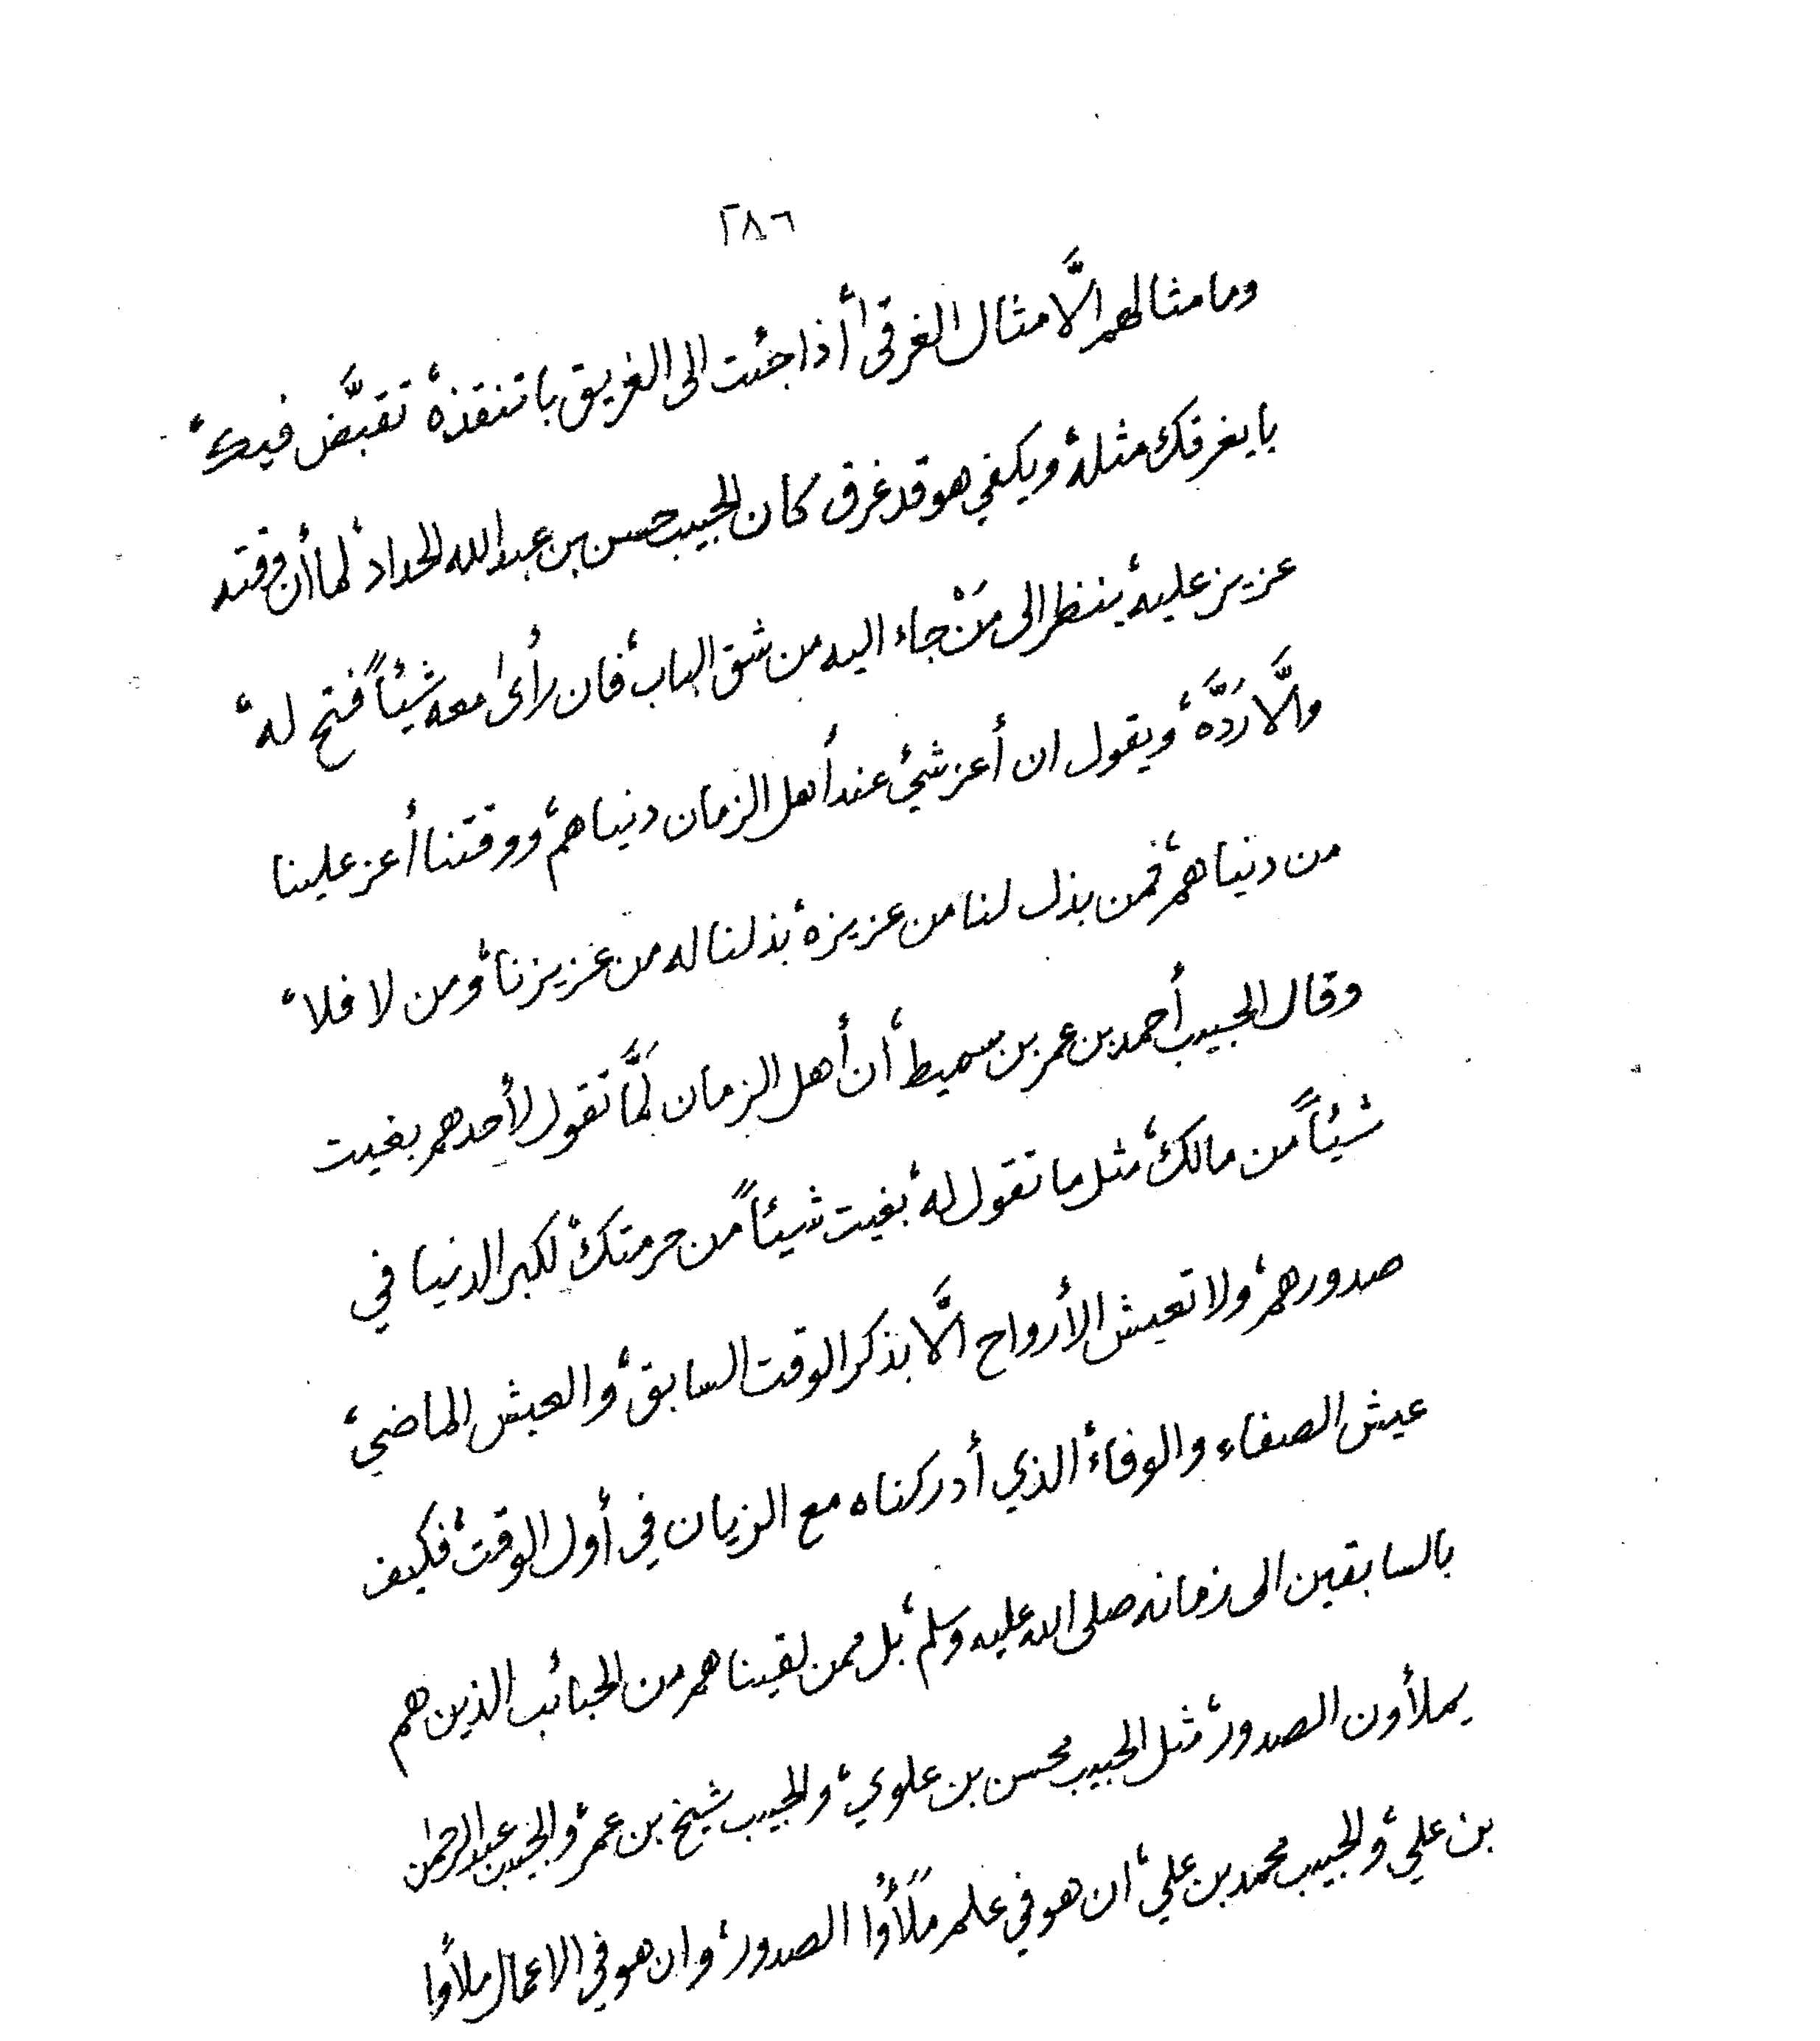 ٢٨٦
وما مثالهم الَّا مثال الغرقى أذا جئت الى الغريق باتنقذه، تقبَّض فيك،
بايغرقك مثله، ويكفي هو قد غرق كان الحبيب حسن بن عبد الله الحداد، لما أن وقته
عزيز عليه، ينظر الى مَنْ جاء اليه من شق الباب، فان رأى معه شيئاً فتح له،
والَّا رَدَّه، ويقول ان أعز شيء عند أهل الزمان دنياهم، ووقتنا أعز علينا
من دنياهم، فمن بذل لنا من عزيزه، بذلنا له من عزيزنا، ومن لا فلا،
وقال الحبيب أحمد بن عمر بن سميط، أن أهل الزمان لمَّا تقول لأحدهم بغيت
شيئاً من مالك، مثل ما تقول له، بغيت شيئاً من حرمتك، لكبر الدنيا في
صدورهم، ولا تعيش الأرواح الَّا بذكر الوقت السابق، والعيش الماضي،
عيش الصفاء والوفاء، الذي أدركناه مع الزيان في أول الوقت، فكيف
بالسابقين الى زمانه صلى الله عليه وسلم، بل ممن لقيناهم من الحبائب الذين هم
يملأون الصدور، مثل الحبيب محسن بن علوي، والحبيب شيخ بن عمر، والحبيب عبدالرحمن
بن علي، والحبيب محمد بن علي، ان هو في علم مَلَأُوا الصدور، وان هو في الاعمال ملأوا